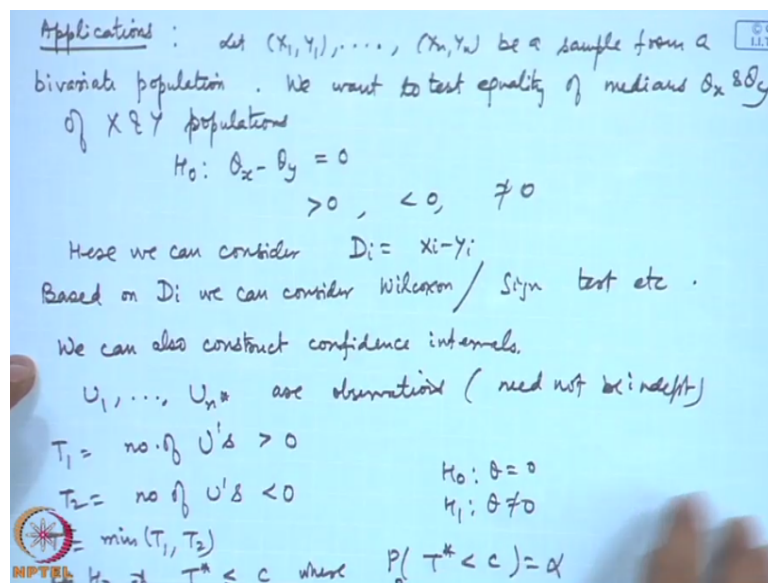 Applications : Let (X1, Y1), ...., (Xn, Yn) be a sample from a
bivariate population. We want to test equality of medians θx & θy
of X & Y populations
H0: θx - θy = 0
>0, <0, ≠0
Here we can consider Di = Xi - Yi
Based on Di we can consider Wilcoxon / Sign test etc.
We can also construct confidence intervals.
U1, ..., Un* are observations (need not be indept)
T1 = no. of U's > 0
H0: θ = 0
T2 = no of U's < 0
H1: θ ≠ 0
= min (T1, T2)
T* < c where P( T* < c) = α
NPTEL